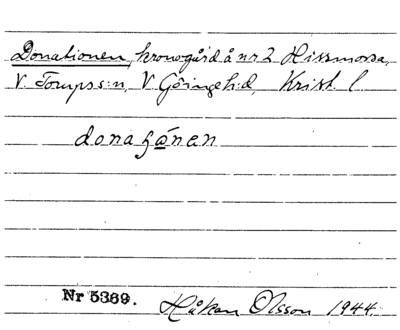 Donationen, kronogård å nr 2 Hissmossa,
V. Torups:n, V. Göingeh:d, Krist. l
donaʃǿnen
Nr 5369. Håkan Olsson 1944.